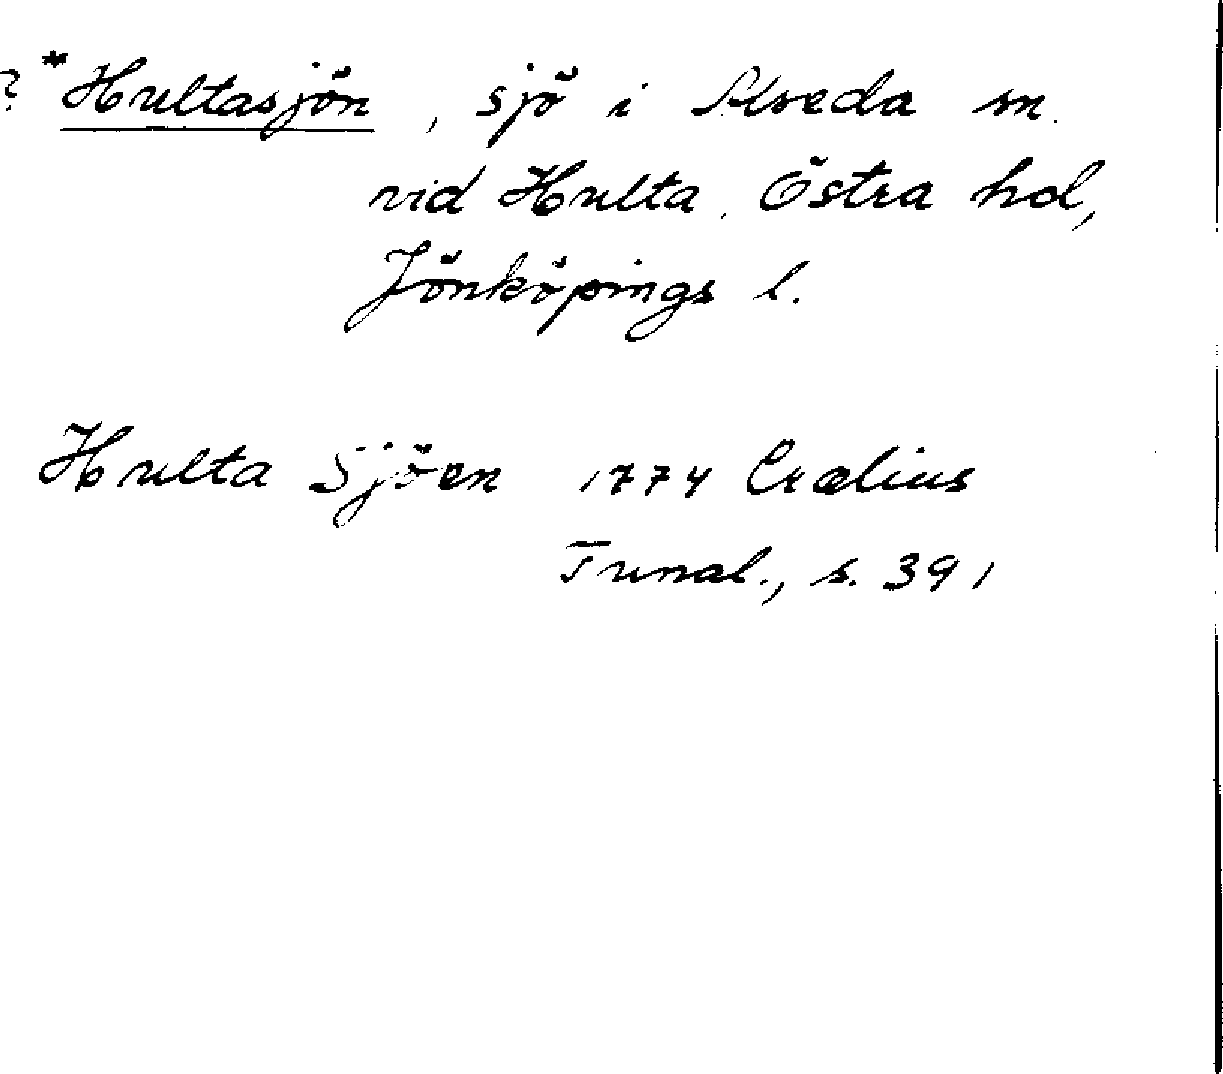 ? *Hultasjön, sjö i Alseda sn.
vid Hulta, Östra hd,
Jönköpings l.
Hulta Sjöen 1774 Crælius
Tunal., s. 391